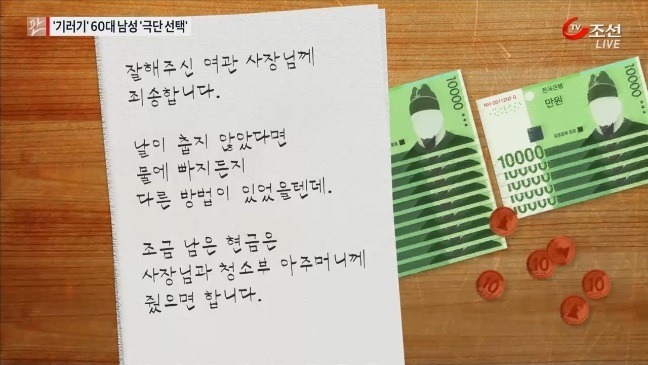 판 '기러기' 60대 남성 '극단 선택'
TV조선
LIVE
잘해주신 여관 사장님께
죄송합니다.
날이 춥지 않았다면
물에 빠지든지
다른 방법이 있었을텐데.
조금 남은 현금은
사장님과 청소부 아주머니께
줬으면 합니다.
10000
한국은행
만원
10000
10000
10000
10000
10000
10
10